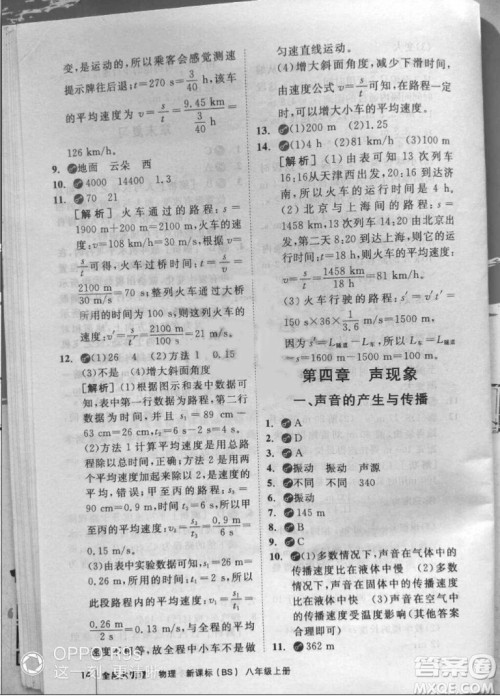 变，是运动的，所以乘客会感觉测速
提示牌往后退；t＝270 s＝3/40 h，该车
的平均速度为 v＝s/t＝9.45 km/(3/40 h)＝
126 km/h.
9. 地面 云朵 西
10. 4000 14400 1.3
11. 70 21
[解析] 火车通过的路程：s＝
1900 m＋200 m＝2100 m，火车的速
度：v＝108 km/h＝30 m/s，根据 v＝
s/t 可得，火车过桥时间：t＝s/v＝
2100 m/30 m/s＝70 s；整列火车通过大桥
所用的时间为 100 s，则这列火车的
速度：v′＝s/t′＝2100 m/100 s＝21 m/s.
12. (1)26 4 (2)方法1 0.15
(3)不是 (4)增大斜面角度
[解析](1)根据图示和表中数据可知，
表中第一行数据为路程，第二行
数据为时间，并且 s＝89 cm－
63 cm＝26 cm，t₂＝6 s－2 s＝4 s.
(2)方法 1 计算平均速度是用总路
程比总时间，正确；方法 2 是用两个
平均速度加起来除以 2，是速度的平
均，错误；甲至丙的路程：s₃＝
90 cm＝0.9 m，时间 t₃＝6 s，所以甲
至丙的平均速度：v₃＝s₃/t₃＝0.9 m/6 s＝
0.15 m/s.
(3)由表中实验数据可知，s₁＝26 m
＝0.26 m，所用的时间 t₁＝2 s，所以
此段路程内的平均速度：v₁＝s₁/t₁＝
0.26 m/2 s＝0.13 m/s，与全程的平均速
度不等，故在全程中小车不是做
匀速直线运动.
(4)增大斜面角度，减少下滑时间，
由速度公式 v＝s/t 可知，在路程一定
时，可以增大小车的平均速度.
13. (1)200 m (2)1.25
14. (1)4 h (2)81 km/h (3)100 m
[解析](1)由表可知 13 次列车
16:16从天津西出发，20:16到达济
南，所以火车的运行时间是 4 h.
(2)北京与上海间的路程：s＝
1458 km，13 次列车 14:20 由北京出
发，第二天 8:20 到达上海，则它的运
行时间：t＝18 h，则火车的平均速度：
v＝s/t＝1458 km/18 h＝81 km/h.
(3)火车行驶的路程：s′＝v′t′＝
150 s×36×1/3.6 m/s＝1500 m.
因为 s′＝L隧道－L车，所以 L车＝L隧道
－s＝1600 m－1500 m＝100 m.
第四章 声现象
一、声音的产生与传播
1. A
2. D
3. A
4. 振动 振动 声源
5. 不同 不同 340
6. 振动
7. 145 m
8. B
9. C
10. (1)多数情况下，声音在气体中
的传播速度比在液体中慢 (2)多数
情况下，声音在固体中的传播速度
比在液体中快 (3)声音在空气中
的传播速度受温度影响(其他答案
合理即可)
11. 362 m
14 物理 新课标（BS） 八年级上册
OPPO R9S